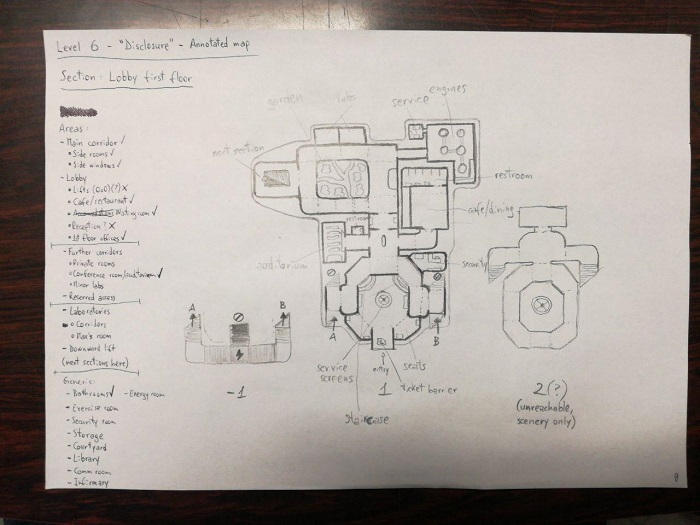 Level 6 - "Disclosure" - Annotated map
Section: Lobby first floor
Areas:
- Main corridor ✓
• Side rooms ✓
• Side windows ✓
- Lobby
• Lifts (0x0)(?) X
• Cafe/restaurant ✓
• Waiting room ✓
• Reception? X
• 1st floor offices ✓
- Further corridors
• Private rooms
• Conference room/auditorium ✓
• Minor labs
- Reserved access
- Laboratories
• Corridors
• Man's room
- Downward lift
(next sections here)
Generic:
- Bathrooms ✓ - Energy room
- Exercise room
- Security room
- Storage
- Courtyard
- Library
- Comm room
- Infirmary
garden
labs
service
engines
next section
restroom
restroom
cafe/dining
auditorium
security
A
B
A
B
service screens
entry
seats
ticket barrier
staircase
-1
1
2(?)
(unreachable,
scenery only)